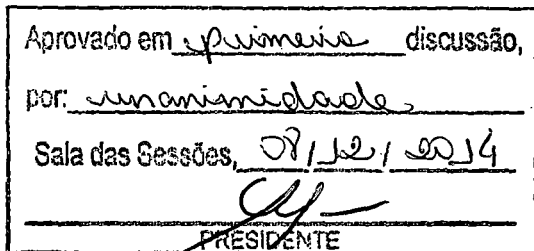 Aprovado em primeira discussão,
por: unanimidade
Sala das Sessões, 08/12/2014
PRESIDENTE